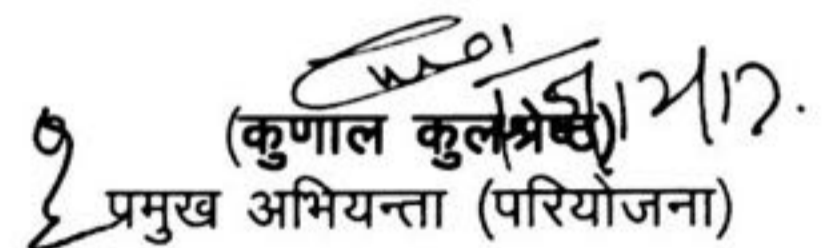 (कुणाल कुलश्रेष्ठ)
प्रमुख अभियन्ता (परियोजना)